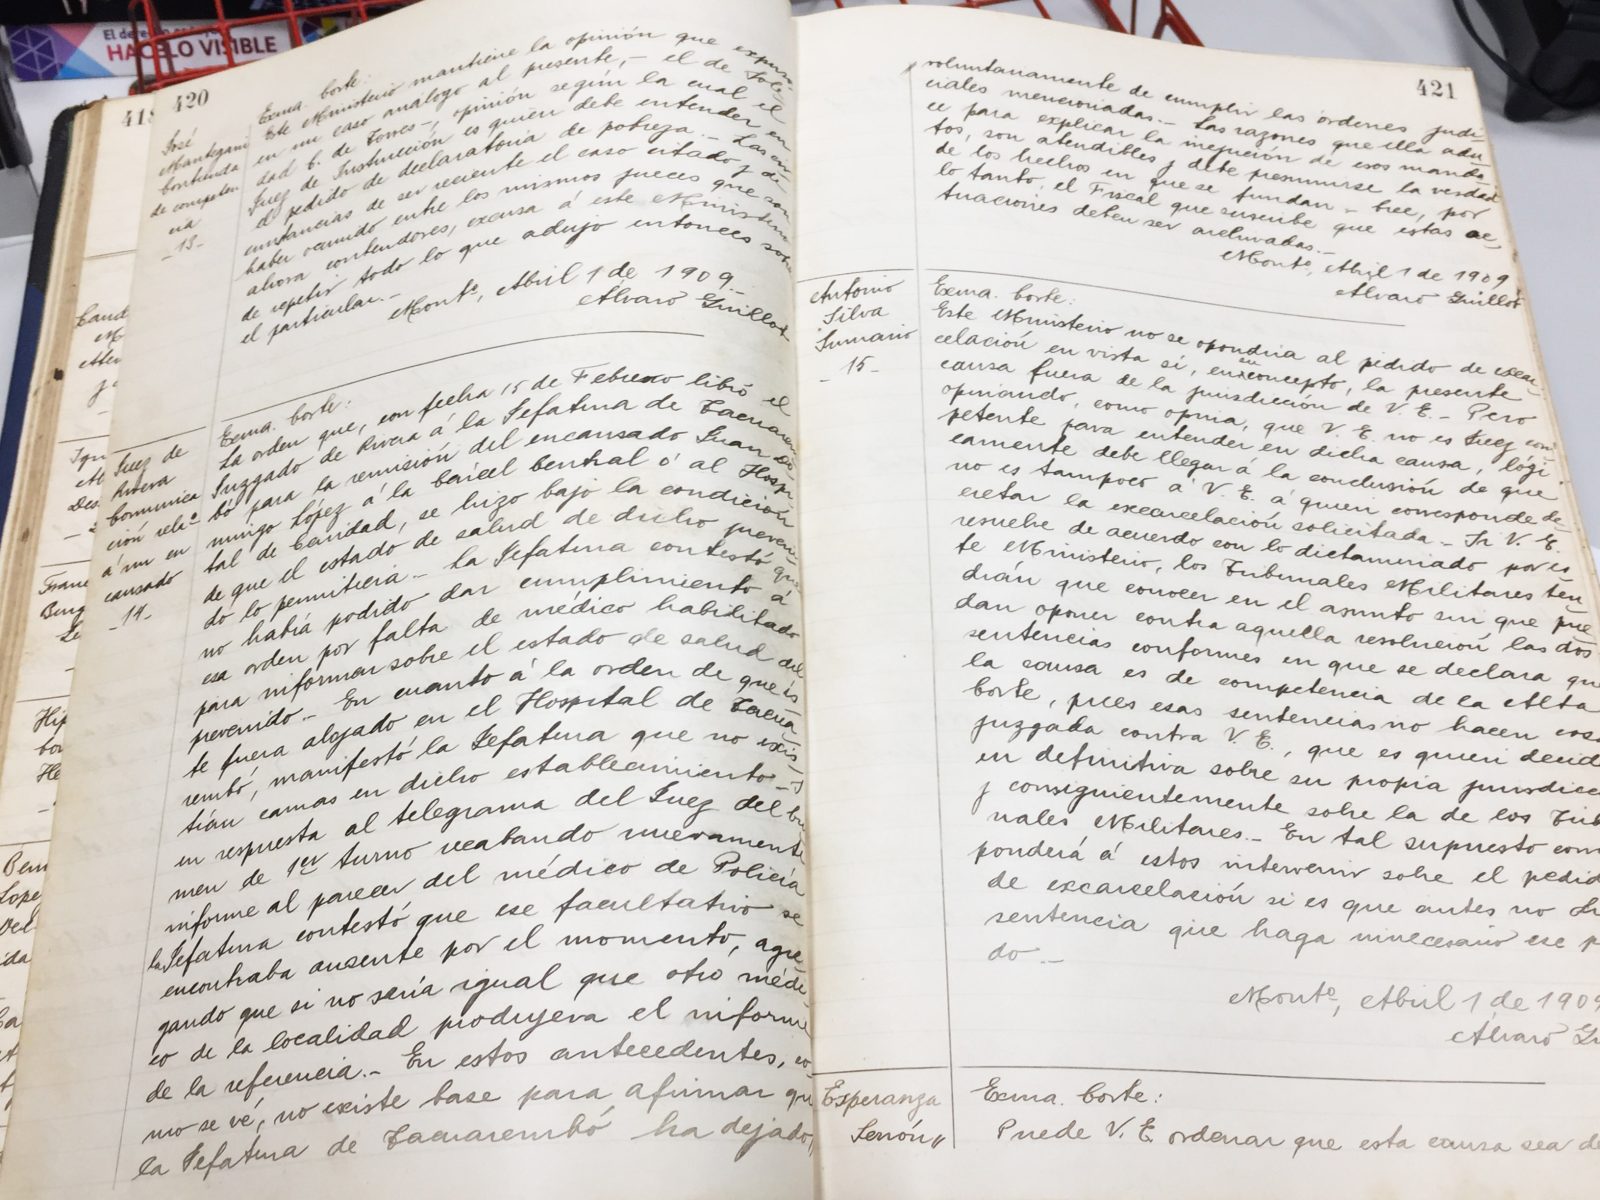 El
HACELO VISIBLE
418
420
José
Mantegani
contienda
de competen
cia
_13_
Exma. Corte:
Este Ministerio mantiene la opinión que expuso
en un caso análogo al presente, – el de Sole-
dad C. de Torres –, opinión según la cual el
Juez de Instrucción es quien debe entender en
el pedido de declaratoria de pobreza. – Las cir-
cunstancias de ser reciente el caso citado y de
haber ocurrido entre los mismos jueces que son
ahora contendores, excusa á este Ministerio
de repetir todo lo que adujo entonces sobre
el particular. –
Montº, Abril 1 de 1909 –
Alvaro Guillot
Juez de
Rivera
Comunica
ción relª
á un en
causado
_14_
Exma. Corte:
La orden que, con fecha 15 de Febrero libró el
Juzgado de Rivera á la Jefatura de Tacuarem
bó para la remisión del encausado Juan Do
mingo López a la Cárcel Central ó al Hospi
tal de Caridad, se hizo bajo la condición
de que el estado de salud de dicho preveni
do lo permitiera. – La Jefatura contestó que
no había podido dar cumplimiento á
esa orden por falta de médico habilitado
para informar sobre el estado de salud del
prevenido. – En cuanto á la orden de que és
te fuera alojado en el Hospital de Tacua
rembó, manifestó la Jefatura que no exis-
tían camas en dicho establecimiento. –
en respuesta al telegrama del Juez del Cri
men de 1er turno recabando nuevamente
informe al parecer del médico de Policía
la Jefatura contestó que ese facultativo se
encontraba ausente por el momento, agre
gando que si no sería igual que otro médi
co de la localidad produjera el informe
de la referencia. – En estos antecedentes, co-
mo se vé, no existe base para afirmar que
la Jefatura de Tacuarembó ha dejado,,
421
voluntariamente de cumplir las órdenes judi-
ciales mencionadas. – Las razones que ella adu
ce para explicar la inejecución de esos manda
tos, son atendibles y debe presumirse la verdad
de los hechos en que se fundan – Cree, por
lo tanto, el Fiscal que suscribe que estas ac
tuaciones deben ser archivadas. –
Montº, Abril 1 de 1909
Alvaro Guillot
Antonio
Silva
Sumario
_15_
Exma. Corte:
Este Ministerio no se opondría al pedido de excar-
celación en vista si, en su concepto, la presente
causa fuera de la jurisdicción de V. E. – Pero
opinando, como opina, que V. E. no es Juez com
petente para entender en dicha causa, lógi-
camente debe llegar á la conclusión de que
no es tampoco á V. E. á quien corresponde de-
cretar la excarcelación solicitada – Si V. E.
resuelve de acuerdo con lo dictaminado por es
te Ministerio, los Tribunales Militares ten
drán que conocer en el asunto sin que pue
dan oponer contra aquella resolución las dos
sentencias conformes en que se declara que
la causa es de competencia de la Alta
Corte, pues esas sentencias no hacen cosa
juzgada contra V. E., que es quien decid
en definitiva sobre su propia jurisdicc
y consiguientemente sobre la de los Trib
nales Militares. – En tal supuesto corre
ponderá á estos intervenir sobre el pedid
de excarcelación si es que antes no
sentencia que haga innecesario ese p
do –
Montº, Abril 1 de 1909
Alvaro Gu
Esperanza
Serrón,,
Exma. Corte:
Puede V. E. ordenar que esta causa sea de